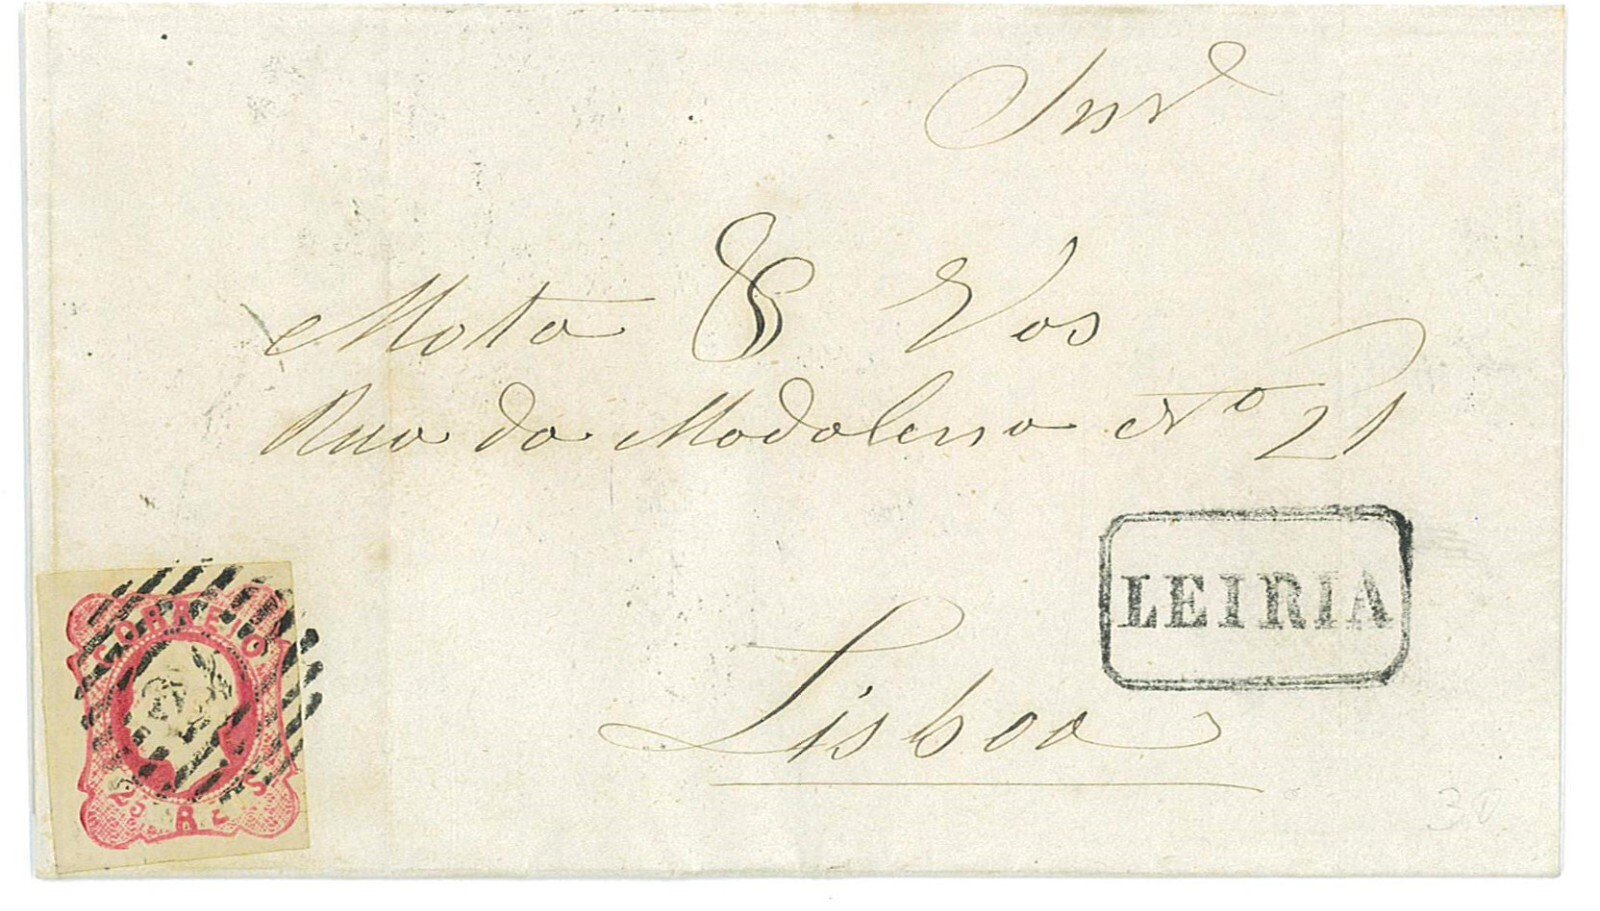 Snrs
Mota & Vas
Rua da Madalena No 21
LEIRIA
Lisboa
CORREIO
25 REIS
30